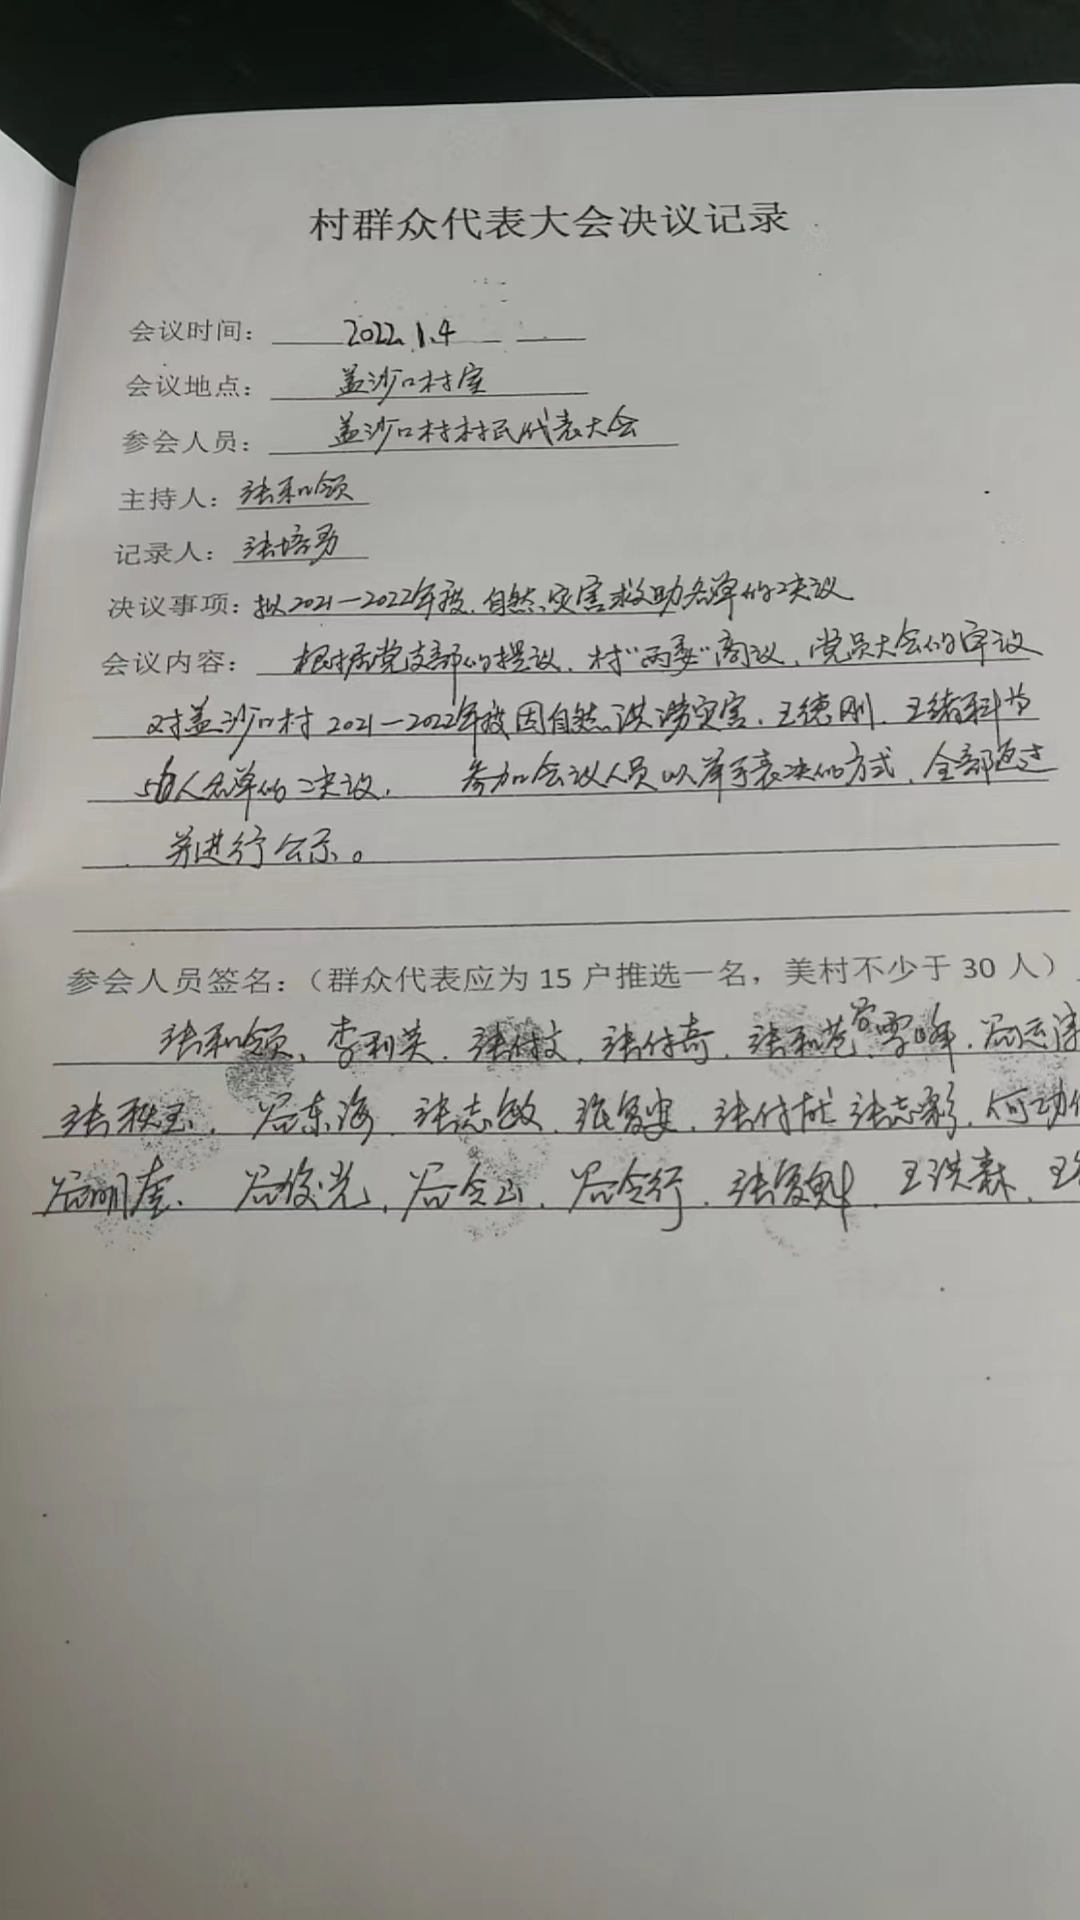 村群众代表大会决议记录
会议时间：2022.1.4
会议地点：盖沙口村室
参会人员：盖沙口村村民代表大会
主持人：张和领
记录人：张培勇
决议事项：拟2021—2022年度自然灾害救助名单的决议
会议内容：根据党支部的提议、村“两委”商议、党员大会的审议
对盖沙口村2021—2022年度因自然洪涝灾害、王德刚、王绪科等
人名单的决议， 参加会议人员以举手表决的方式，全部通过
并进行公示。
参会人员签名：（群众代表应为 15 户推选一名，美村不少于 30 人）
张和领、李利英、张付文、张付奇、张和苍、谷雪峰、谷志
张秋玉、谷东海、张志敏、张复安、张付 张志彩、何功
谷明奎、谷俊光、谷令山、谷令行、张复魁、王洪森、王